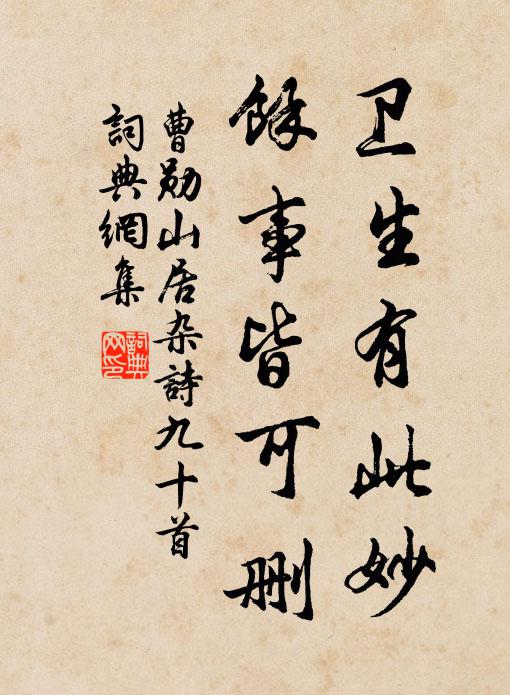 卫生有此妙
餘事皆可删
曹勋山居杂詩九十首
詞典網集
詞典網印